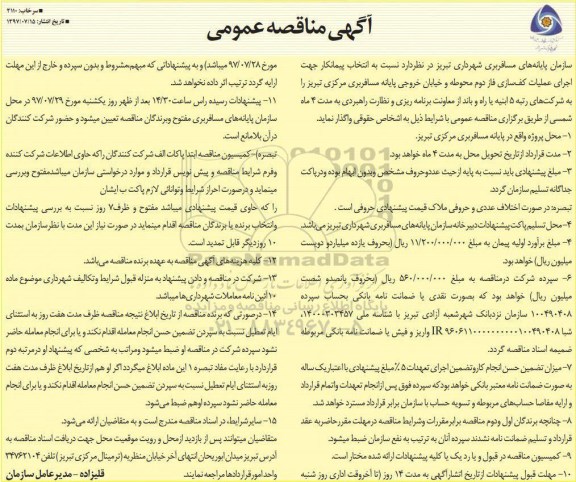 سرخاب: ۲۱۱۰
تاریخ انتشار: ۱۳۹۷/۰۷/۱۵
آگهی مناقصه عمومی
سازمان پایانه‌های مسافربری شهرداری تبریز در نظردارد نسبت به انتخاب پیمانکار جهت
اجرای عملیات کف‌سازی فاز دوم محوطه و خیابان خروجی پایانه مسافربری مرکزی تبریز را
به شرکت‌های رتبه ۵ ابنیه یا راه و باند از معاونت برنامه ریزی و نظارت راهبردی به مدت ۴ ماه
شمسی از طریق برگزاری مناقصه عمومی با شرایط ذیل به اشخاص حقوقی واگذار نماید.
۱- محل پروژه واقع در پایانه مسافربری مرکزی تبریز.
۲- مدت قرارداد از تاریخ تحویل محل به مدت ۴ ماه خواهد بود.
۳- مبلغ پیشنهادی باید نسبت به پایه از حیث عدد و حروف مشخص و بدون ابهام بوده و در پاکت
جداگانه تسلیم سازمان گردد.
تبصره: در صورت اختلاف عددی و حروفی ملاک قیمت پیشنهادی حروفی است.
۴- محل تسلیم پاکت پیشنهادات دبیرخانه سازمان پایانه‌های مسافربری شهرداری تبریز می‌باشد.
۵- مبلغ برآورد اولیه پیمان به مبلغ ۱۱/۲۰۰/۰۰۰/۰۰۰ ریال (بحروف یازده میلیارد و دویست
میلیون ریال) خواهد بود.
۶- سپرده شرکت در مناقصه به مبلغ ۵۶۰/۰۰۰/۰۰۰ ریال (بحروف پانصد و شصت
میلیون ریال) خواهد بود که بصورت نقدی یا ضمانت نامه بانکی بحساب سپرده
۱۰۰۴۹۰۴۰۸ سازمان نزد بانک شهر شعبه آزادی تبریز با شناسه ملی ۱۴۰۰۰۳۰۳۴۵۷،
شبا IR واریز و فیش یا ضمانت نامه بانکی مربوطه
ضمیمه اسناد مناقصه گردد.
۷- میزان تضمین حسن انجام کار و تضمین اجرای تعهدات ۵٪ مبلغ پیشنهادی با اعتبار یک ساله
به صورت ضمانت نامه معتبر بانکی خواهد بود که سپرده فوق پس از انجام تعهدات و اتمام قرارداد
و ارایه مفاصا حساب‌های مربوطه و تسویه حساب با سازمان برابر قرارداد مسترد خواهد شد.
۸- چنانچه برندگان اول و دوم مناقصه برابر مقررات و شرایط مناقصه در مهلت مقرر حاضر به عقد
قرارداد و تسلیم ضمانت نامه نشدند سپرده آنان به ترتیب به نفع سازمان ضبط میشود.
۹- کمیسیون مناقصه در قبول و یا رد یک یا کلیه پیشنهادات ارائه شده مختار است.
۱۰- مهلت قبول پیشنهادات از تاریخ انتشار آگهی به مدت ۱۴ روز (تا آخر وقت اداری روز شنبه
مورخ ۹۷/۰۷/۲۸ میباشد) و به پیشنهاداتی که مبهم، مشروط و بدون سپرده و خارج از این مهلت
ارایه گردد ترتیب اثر داده نخواهد شد.
۱۱- پیشنهادات رسیده راس ساعت ۱۴/۳۰ بعد از ظهر روز یکشنبه مورخ ۹۷/۰۷/۲۹ در محل
سازمان پایانه‌های مسافربری مفتوح و برندگان مناقصه تعیین میشود و حضور شرکت کنندگان
در آن بلامانع است.
تبصره: کمیسیون مناقصه ابتدا پاکات الف شرکت کنندگان را که حاوی اطلاعات شرکت کننده
و فرم شرایط مناقصه و پیش نویس قرارداد و موارد درخواستی سازمان میباشد مفتوح و بررسی
مینماید و در صورت احراز شرایط و توانائی لازم پاکت ب ایشان
را که حاوی قیمت پیشنهادی میباشد مفتوح و ظرف ۷ روز نسبت به بررسی پیشنهادات
و انتخاب برنده یا برندگان مناقصه اقدام مینماید در صورت نیاز این مدت با نظر سازمان بمدت
۱۰ روز دیگر قابل تمدید است.
۱۲- کلیه هزینه‌های آگهی مناقصه به عهده برنده مناقصه می‌باشد.
۱۳- شرکت در مناقصه و دادن پیشنهاد به منزله قبول شرایط و تکالیف شهرداری موضوع ماده
۱۰ آئین نامه معاملات شهرداری‌ها میباشد.
۱۴- در صورتی که برنده مناقصه از تاریخ ابلاغ نتیجه مناقصه ظرف مدت هفت روز به استثنای
ایام تعطیل نسبت به سپردن تضمین حسن انجام معامله اقدام نکند و یا برای انجام معامله حاضر
نشود سپرده شرکت در مناقصه او ضبط میشود و مراتب به شخصی که پیشنهاد او در مرتبه دوم
قرار دارد با رعایت مفاد تبصره ۱ این ماده ابلاغ میگردد اگر او هم از تاریخ ابلاغ ظرف مدت هفت
روز به استثنای ایام تعطیل نسبت به سپردن تضمین حسن انجام معامله اقدام نکند و یا برای انجام
معامله حاضر نشود سپرده او هم ضبط می‌شود.
۱۵- سایر شرایط، در اسناد مناقصه مندرج است و به متقاضیان ارائه می‌شود.
متقاضیان میتوانند پس از بازدید از محل و رویت موقعیت محل جهت دریافت اسناد مناقصه به
آدرس تبریز میدان ابوریحان انتهای آخر خیابان منظریه (ترمینال مرکزی تبریز) تلفن ۳۴۷۶۲۱۰۴
واحد امور قراردادها مراجعه نمایند.
قلیزاده - مدیر عامل سازمان